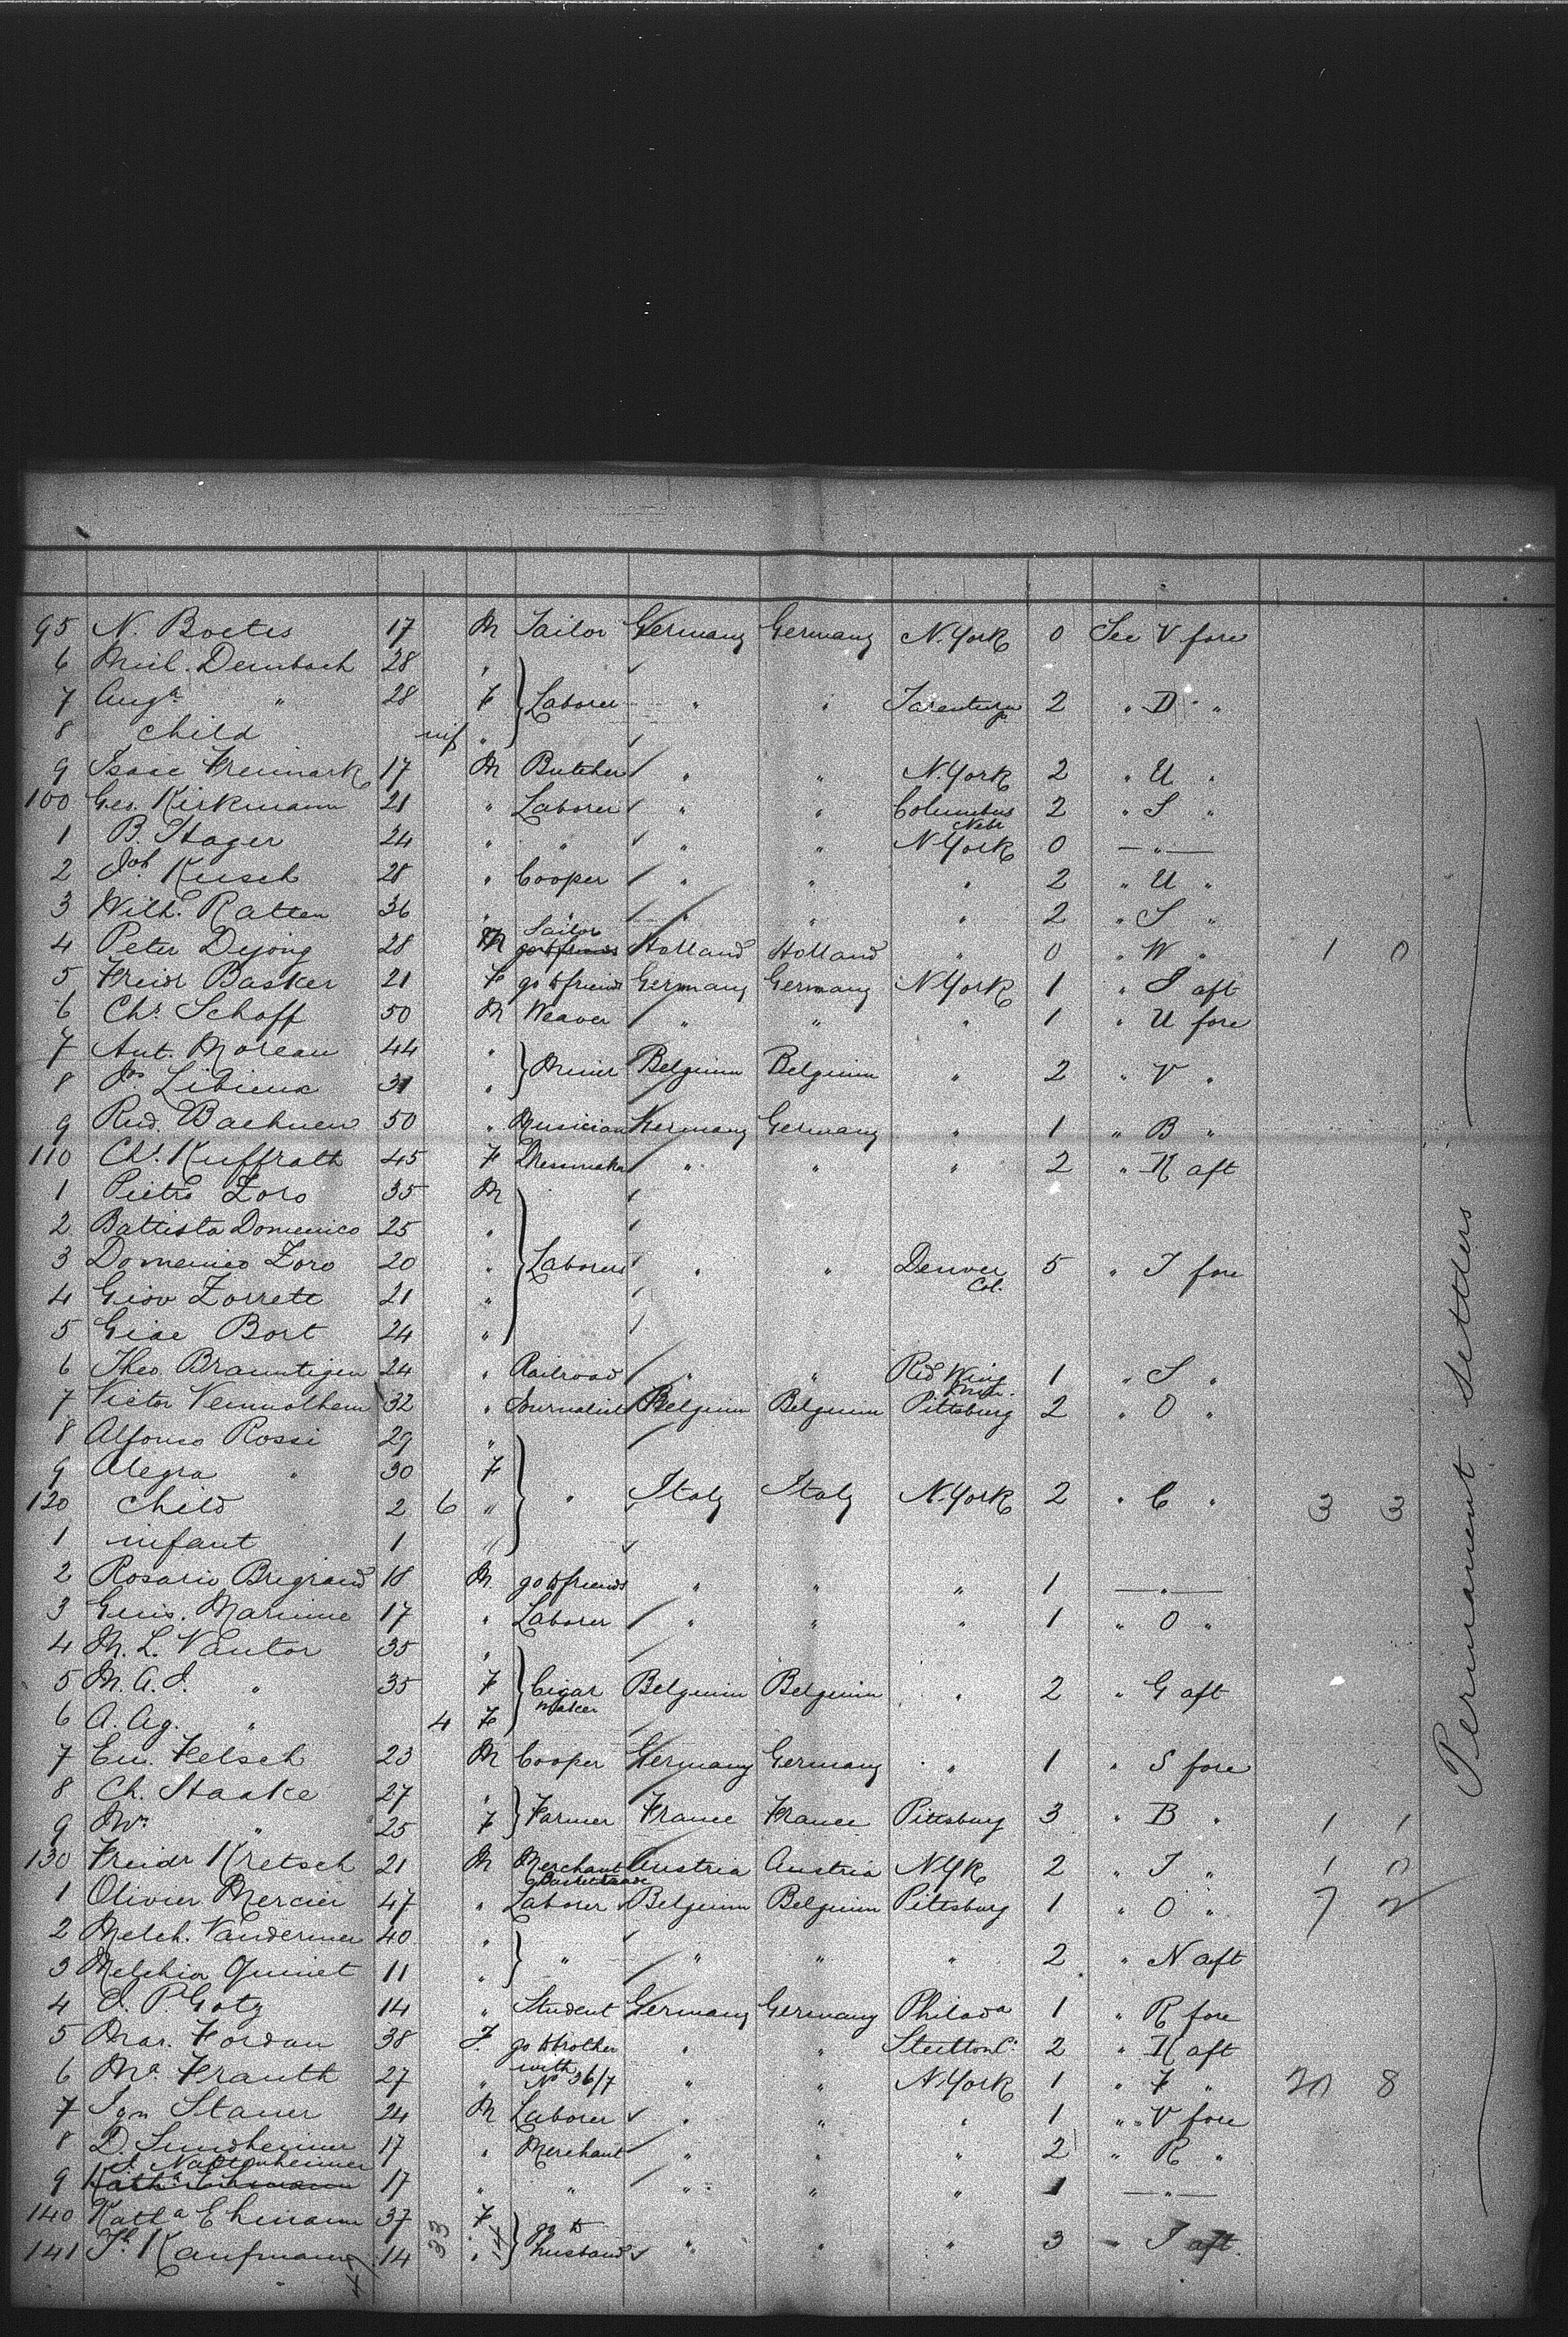 95 N. Boetes 17 M Tailor Germany Germany N. York 0 Sec V fore
6 Mich. Dembach 28 "
7 Aug.a " 28 F Laborer " " Tarentum Pa 2 " D "
8 child inf "
9 Isaac Freimark 17 M Butcher " " N. York 2 " U "
100 Geo. Kirkmann 21 " Laborer " " Columbus Nebr 2 " S "
1 B. Hager 24 " " " " N York 0 — " —
2 Joh Kusch 28 " Cooper " " " 2 " U "
3 Wilh. Ratten 36 " " " " " 2 " S "
4 Peter Dejong 28 M Sailor Holland Holland " 0 " W " 1 0
5 Freidr Basker 21 F go to friends Germany Germany N York 1 " I aft
6 Chr. Schoff 50 M Weaver " " " 1 " U fore
7 Aut. Moreau 44 "
8 Jos Libieux 31 " Miner Belgium Belgium " 2 " V "
9 Rud. Bachnen 50 " Musician Germany Germany " 1 " B "
110 Chr. Kuffrath 45 F Dressmaker " " " 2 " K aft
1 Pietro Zoro 35 M
2 Battista Domenico 25 "
3 Domenico Zoro 20 " Laborers " " Denver Col. 5 " T fore
4 Giov Zorrett 21 "
5 Giac Bort 24 "
6 Theo Brauntigen 24 " Railroad " " Red Wing Minn. 1 " S "
7 Victor Vermolhem 32 " Journalist Belgium Belgium Pittsburg 2 " O "
8 Alfonso Rossi 29 "
9 Alegra " 30 F
120 child 2 6 " " Italy Italy N. York 2 " C " 3 3
1 infant 1 "
2 Rosario Brigrand 18 M. go to friends " " " 1 — " —
3 Guis. Marinne 17 " Laborer " " " 1 " O "
4 M. L. Vautor 35 "
5 M. A. J. " 35 F Cigar maker Belgium Belgium " 2 " G aft
6 A. Ag. " 4 F
7 Em. Felsch 23 M Cooper Germany Germany " 1 " S fore
8 Ch. Haake 27 "
9 Mrs " 25 F Farmer France France Pittsburg 3 " B " 1 1
130 Freidr Kretsch 21 M Merchant Austria Austria N Yk 2 " T " 1 0
1 Olivier Mercier 47 " Laborer Belgium Belgium Pittsburg 1 " O " 7 2
2 Melch. Vandermer 40 "
3 Melchior Quinet 11 " " " " " 2 " N aft
4 C. P. Gotz 14 " Student Germany Germany Philada 1 " R fore
5 Mar. Fordan 38 F. go to brother " " 2 " K aft
6 Ma. Frauth 27 " with No 36/7 " " N. York 1 " F " 20 8
7 Ign Stauer 24 M Laborer " " " 1 " V fore
8 D. Sundheimer 17 " Merchant " " " 2 " R "
9 17 " " " " " 1 — " —
140 Katha Ehmann 37 F go to
141 Kaufmann 14 33 " 14 husband " " " 3 " I aft.
47
Permanent Settlers